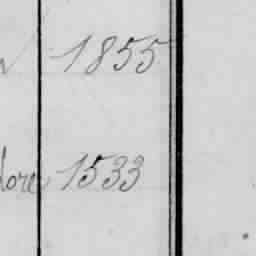 1855
lore 1533